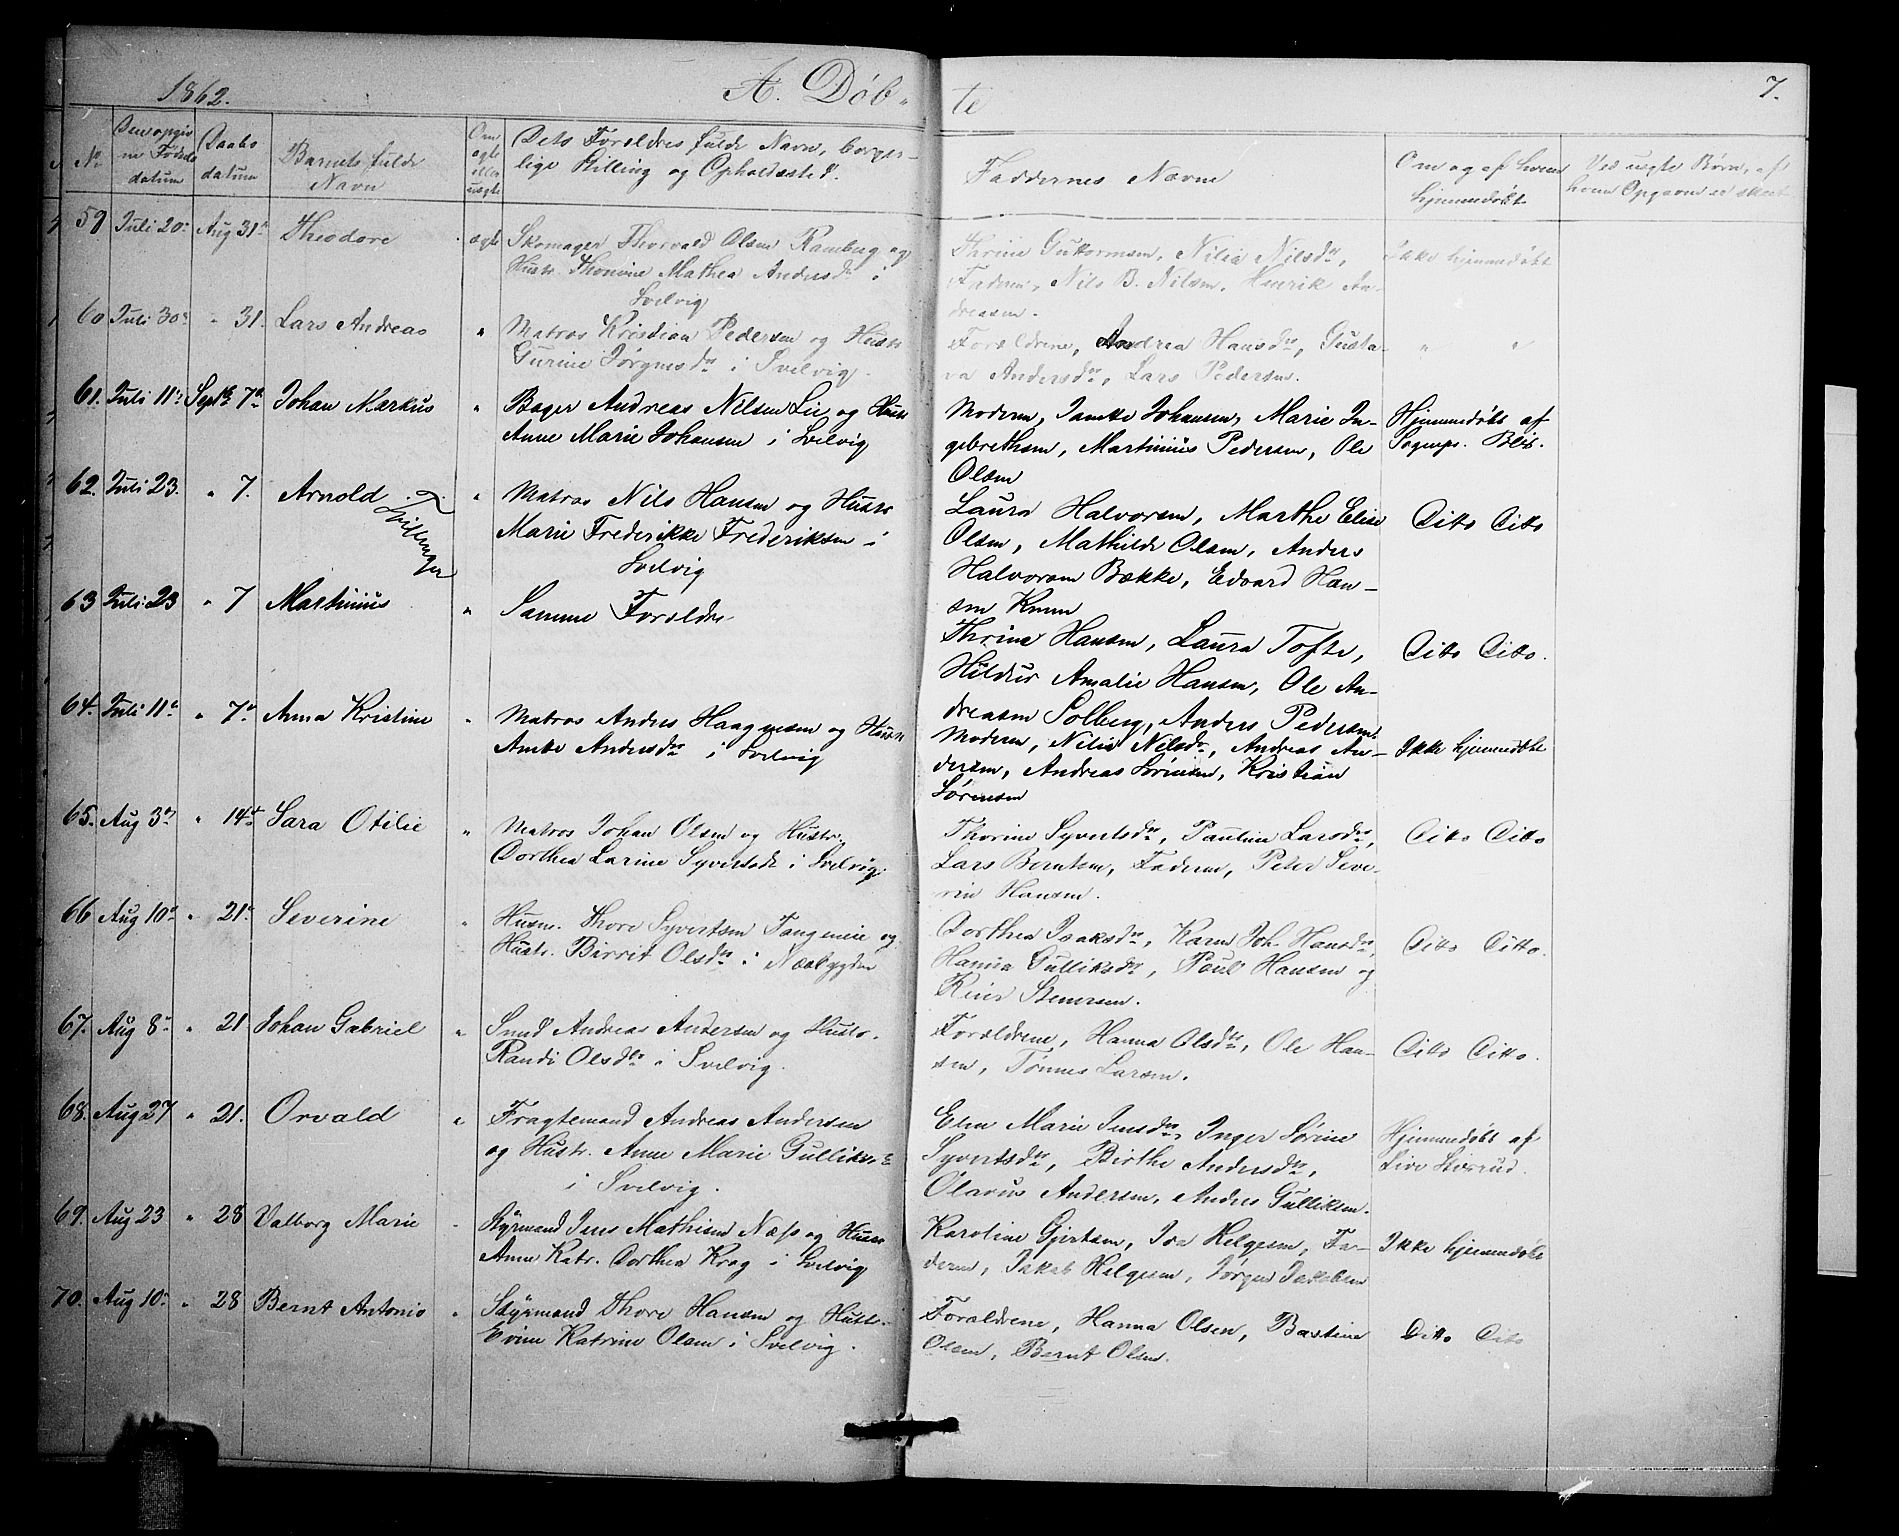 1862. A. Døb- te 7.
No Den opgivne Fødselsdatum Daabsdatum Barnets fulde Navn Om ægte eller uægte Dets Forældres fulde Navn, borgerlige Stilling og Opholdssted. Faddernes Navne Om og af hvem hjemmedøbt Ved uægte Børn, af hvem Opgaven er skeet
59 Juli 20de Aug 31te Theodore ægte Skomager Thorvald Olsen Ramberg og Thrine Guttormsen, Nilia Nilsdr, Ikke hjemmedøbt
Hustr. Thomine Mathea Andersdr i Faderen, Nils B. Nilsen, Henrik An-
Svelvig dreasen.
60 Juli 30te " 31. Lars Andreas " Matros Kristian Pedersen og Hustr Forældrene, Andrea Hansdr, Gusta- " "
Gurine Jørgensdr i Svelvig. va Andersdr, Lars Pedersen.
61. Juli 11te Septb 7de Johan Markus " Bager Andreas Nilsen Lie og Hustr Moderen, Jamte Johansen, Marie In- Hjemmedøbt af
Anne Marie Johansen i Svelvig gebrethsen, Martinius Pedersen, Ole Sogneps. Blix.
Olsen
62. Juli 23. " 7. Arnold Tvillinger " Matros Nils Hansen og Hustr Laura Halvorsen, Marthe Elise Ditto Ditto
Marie Frederikke Frederiksen i Olsen, Mathilde Olsen, Anders
Svelvig Halvorsen Bække, Edvard Han-
63 Juli 23 " 7 Martinius " Samme Forældre sen
Thrine Hansen, Laura Tofte, Ditto Ditto.
Hildur Amalie Hansen, Ole An-
dreasen Solberg, Anders Pedersen.
64. Juli 11te " 7de Anna Kristine " Matros Anders Haagensen og Hustr Moderen, Nilia Nilsdr, Andreas An- Ikke hjemmedøbt
Amte Andersdr i Svelvig dersen, Andreas Sørensen, Kristian
Sørensen
65. Aug 3die " 14de Sara Otilie " Matros Johan Olsen og Hustr. Thorine Syvertsdr, Pauline Larsdr, Ditto Ditto
Dorthea Larine Syvertsdr i Svelvig. Lars Berntsen, Faderen, Peter Seve-
rin Hansen.
66 Aug 10de " 21de Severine " Husm. Thore Syvertsen Tangeneie og Dorthea Isaksdr, Karen Joh. Hansdr, Ditto Ditto.
Hustr. Birrit Olsdr i Nesbygden Hanna Gulliksdr, Poul Hansen og
Reier Stenersen.
67. Aug 8de " 21 Johan Gabriel " Smed Andreas Andersen og Hustr. Forældrene, Hanna Olsdr, Ole Han- Ditto Ditto.
Randi Olsdr i Svelvig. sen, Tønnes Larsen.
68. Aug 27 " 21. Orvald " Fragtemand Andreas Andersen Elen Marie Jensdr, Inger Sørine Hjemmedøbt af
og Hustr. Anne Marie Gulliksdr Syvertsdr, Birthe Andersdr, Live Storrud.
i Svelvig. Olavus Andersen, Anders Gulliksen.
69. Aug 23 " 28 Valborg Marie " Styrmand Jens Mathisen Næss og Hustr Karoline Gjertsen, Ida Helgesen, Fa- Ikke hjemmedøbt
Anne Katr. Dorthea Krog i Svelvig deren, Jakob Helgesen, Jørgen Jakobsen
70. Aug 10de " 28 Bernt Antonio " Styrmand Thore Hansen og Hustr. Forældrene, Hanna Olsen, Bastine Ditto Ditto
Evine Katrine Olsen i Svelvig. Olsen, Bernt Olsen.